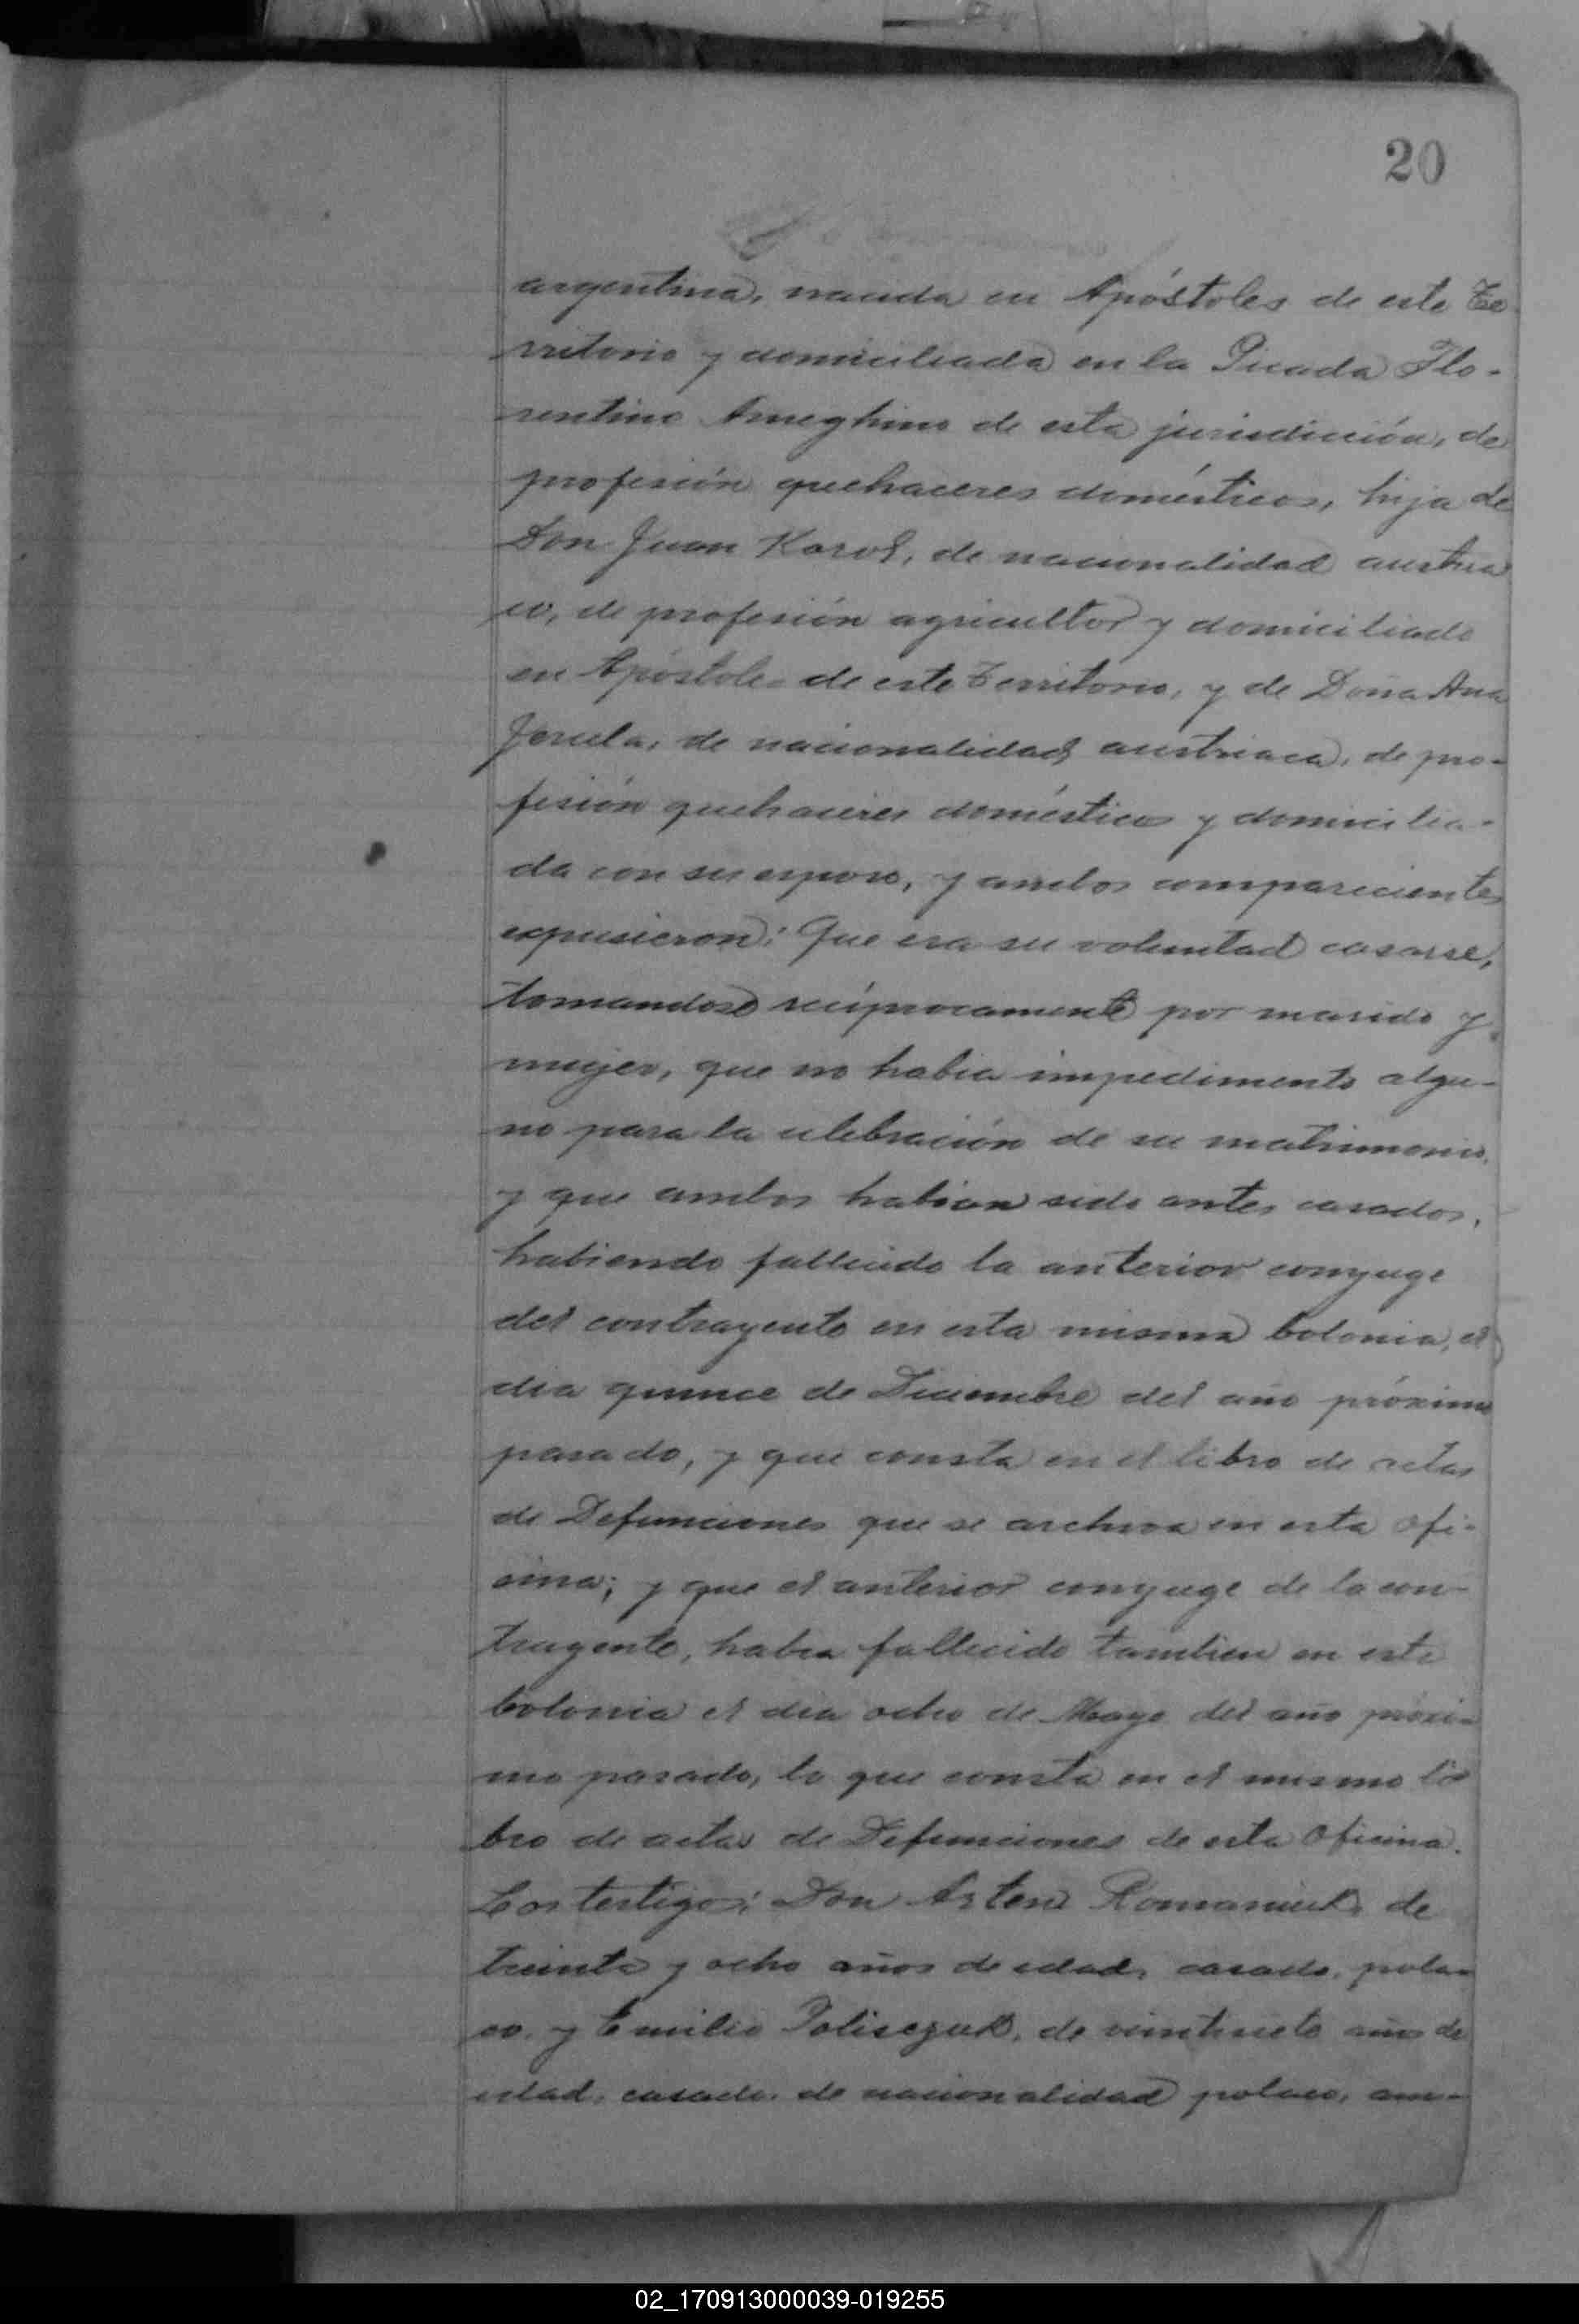 20
argentina, nacida en Apóstoles de este Te-
rritorio y domiciliada en la Picada Flo-
rentino Ameghino de esta jurisdicción, de
profesión quehaceres domésticos, hija de
Don Juan Karol, de nacionalidad austria
co, de profesión agricultor y domiciliado
en Apóstoles de este Territorio, y de Doña Ana
de nacionalidad austriaca, de pro-
fesión quehaceres domésticos y domicilia-
da con su esposo, y ambos comparecientes
expusieron: Que era su voluntad casarse,
tomandose recíprocamente por marido y
mujer, que no habia impedimento algu-
no para la celebración de su matrimonio,
y que ambos habian sido antes casados,
habiendo fallecido la anterior conyuge
del contrayente en esta misma Colonia, el
dia quince de Diciembre del año próximo
pasado, y que consta en el libro de actas
de Defunciones que se archiva en esta ofi-
cina; y que el anterior conyuge de la con-
trayente, habia fallecido tambien en esta
Colonia el dia ocho de Mayo del año próxi-
mo pasado, lo que consta en el mismo li-
bro de actas de Defunciones de esta Oficina.
Los testigos: Don Artem Romaniuk, de
treinta y ocho años de edad, casado, pola-
co, y Emilio Polisczuk, de veintisiete años de
edad, casado, de nacionalidad polaco, am-
02_170913000039-019255